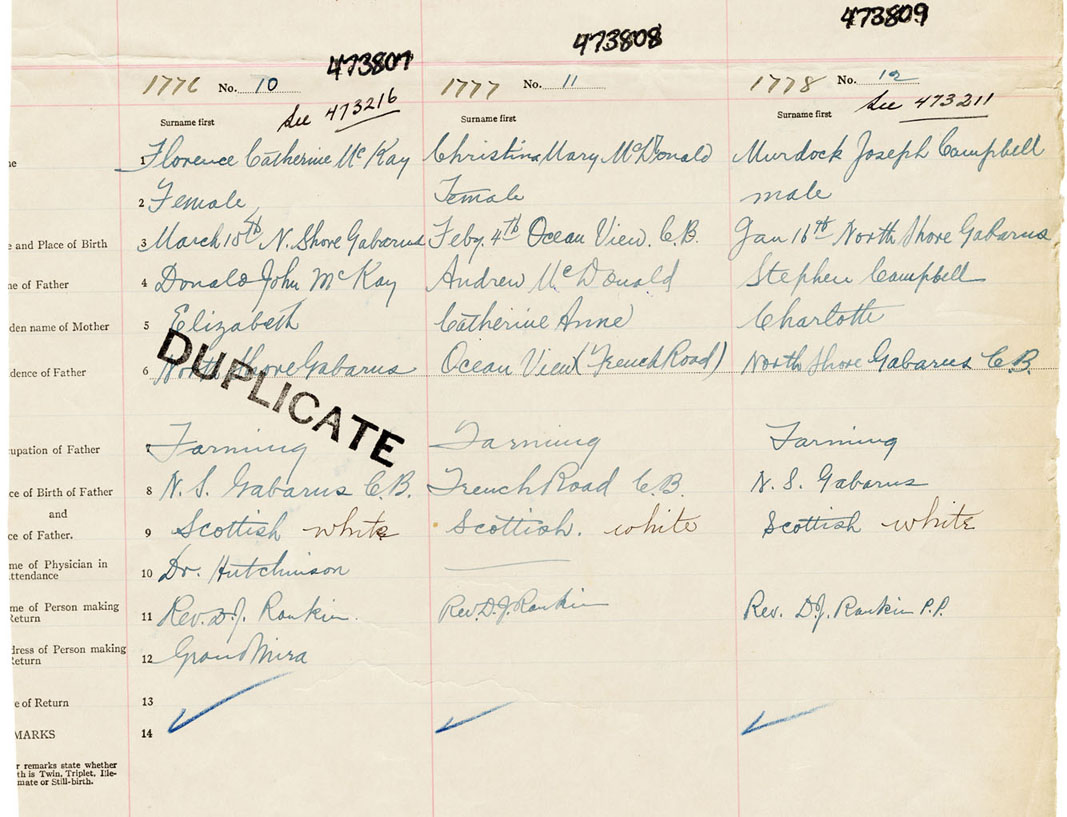 473807 473808 473809
1776 No. 10 1777 No. 11 1778 No. 12
See 473216 See 473211
Surname first Surname first Surname first
me 1 Florence Catherine McKay Christina Mary McDonald Murdock Joseph Campbell
2 Female Female male
e and Place of Birth 3 March 15th N. Shore Gabarus Feby. 4th Ocean View. C.B. Jan 16th North Shore Gabarus
me of Father 4 Donald John McKay Andrew McDonald Stephen Campbell
den name of Mother 5 Elizabeth Catherine Anne Charlotte
dence of Father 6 North Shore Gabarus Ocean View (French Road) North Shore Gabarus C.B.
DUPLICATE
upation of Father 7 Farming Farming Farming
ce of Birth of Father 8 N. S. Gabarus C.B. French Road C.B. N. S. Gabarus
and
ce of Father. 9 Scottish white Scottish. white Scottish white
me of Physician in
ttendance 10 Dr. Hutchinson
me of Person making
Return 11 Rev. D.J. Rankin. Rev. D.J. Rankin Rev. D.J. Rankin P.P.
dress of Person making
Return 12 Grand Mira
e of Return 13
MARKS 14
r remarks state whether
th is Twin, Triplet, Ille-
mate or Still-birth.